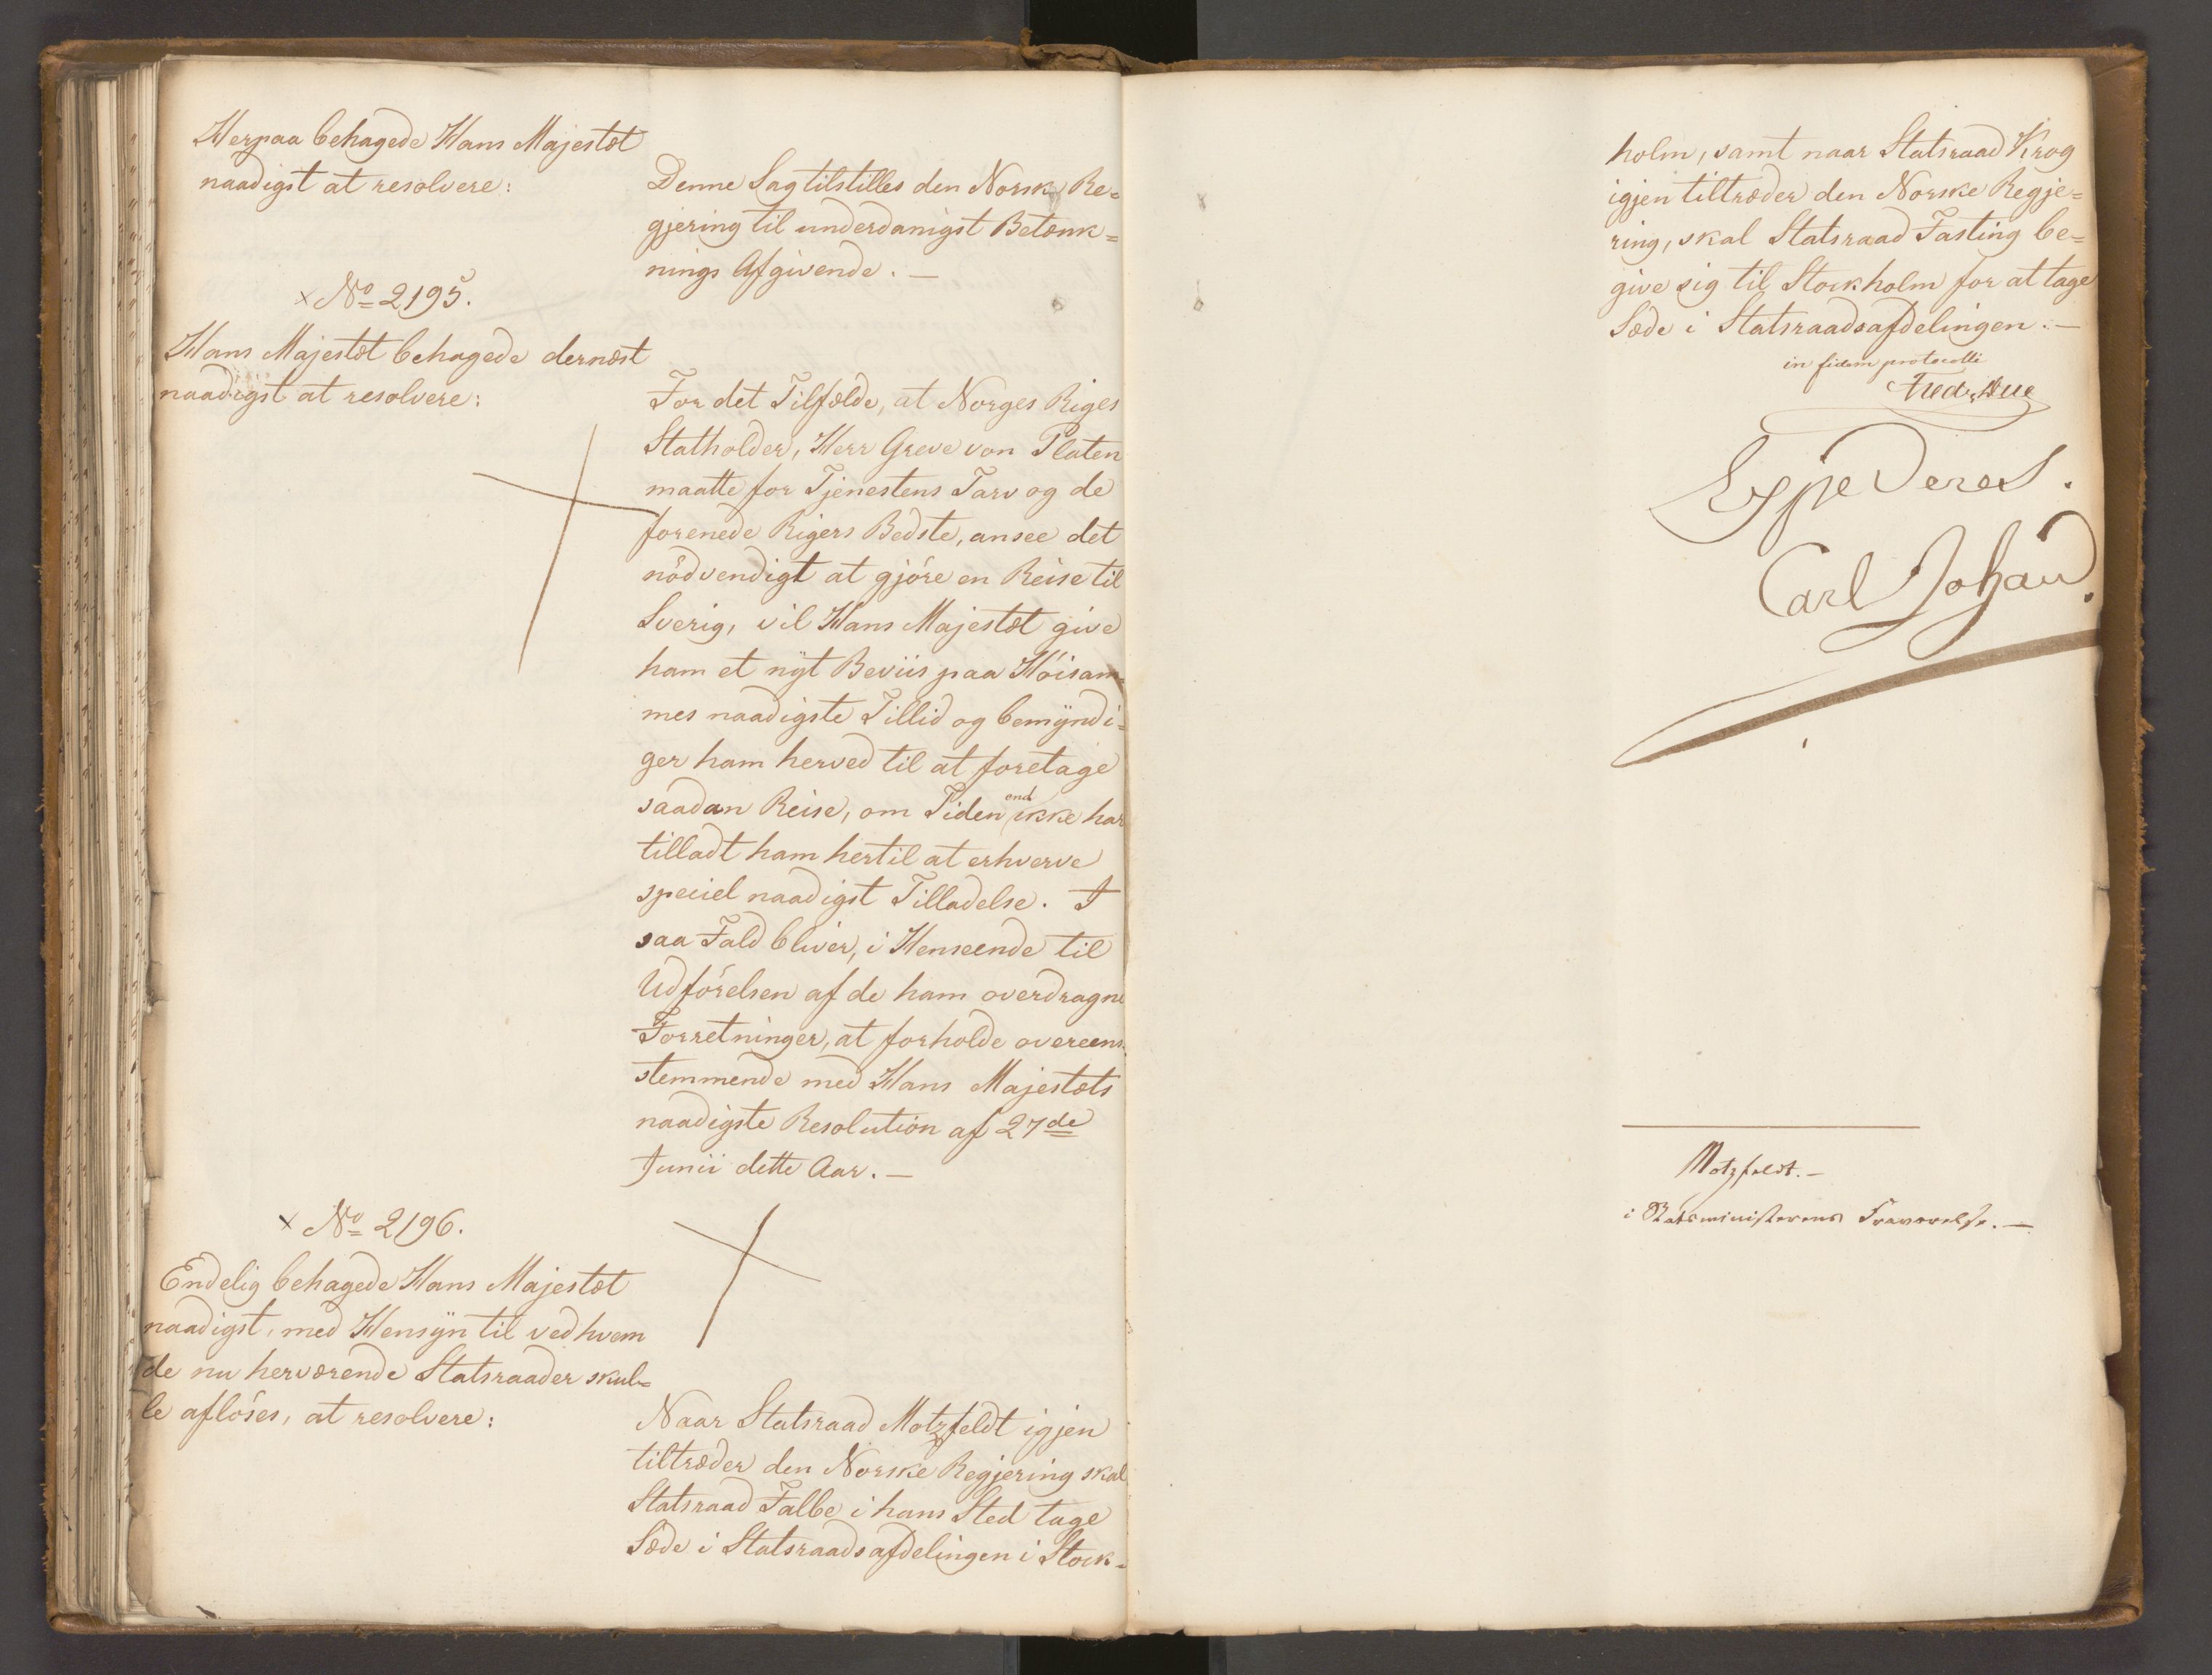 Herpaa behagede Hans Majestæt
naadigst at resolvere:
Denne Sag tilstilles den Norske Re=
gjering til underdanigst Betænk=
nings Afgivende. —
× No 2195.
Hans Majestæt behagede dernæst
naadigst at resolvere:
For det Tilfælde, at Norges Riges
Statholder, Herr Greve von Platen
maatte for Tjenestens Tarv og de
forenede Rigers Bedste, ansee det
nödvendigt at gjöre en Reise til
Sverig, vil Hans Majestæt give
ham et nÿt Beviis paa Höisam=
mes naadigste Tillid og bemÿndi=
ger ham herved til at foretage
saadan Reise, om Tiden end ikke har
tilladt ham hertil at erhverve
speciel naadigst Tilladelse. I
saa Fald bliver, i Henseende til
Udförelsen af de ham overdragne
Forretninger, at forholde overeens=
stemmende med Hans Majestæts
naadigste Resolution af 27de
Junii dette Aar. —
× No 2196.
Endelig behagede Hans Majestæt
naadigst, med Hensÿn til ved hvem
de nu herværende Statsraader skul=
le aflöses, at resolvere:
Naar Statsraad Motzfeldt igjen
tiltræder den Norske Regjering skal
Statsraad Falbe i hans Sted tage
Sæde i Statsraadsafdelingen i Stock=
holm, samt naar Statsraad Krog
igjen tiltræder den Norske Regje=
ring, skal Statsraad Fasting be=
give sig til Stockholm for at tage
Sæde i Statsraadsafdelingen. —
in fidem protocolli
Fred. Due
Expederes.
Carl Johan.
Motzfeldt. —
i Statsministerens Fraværelse. —